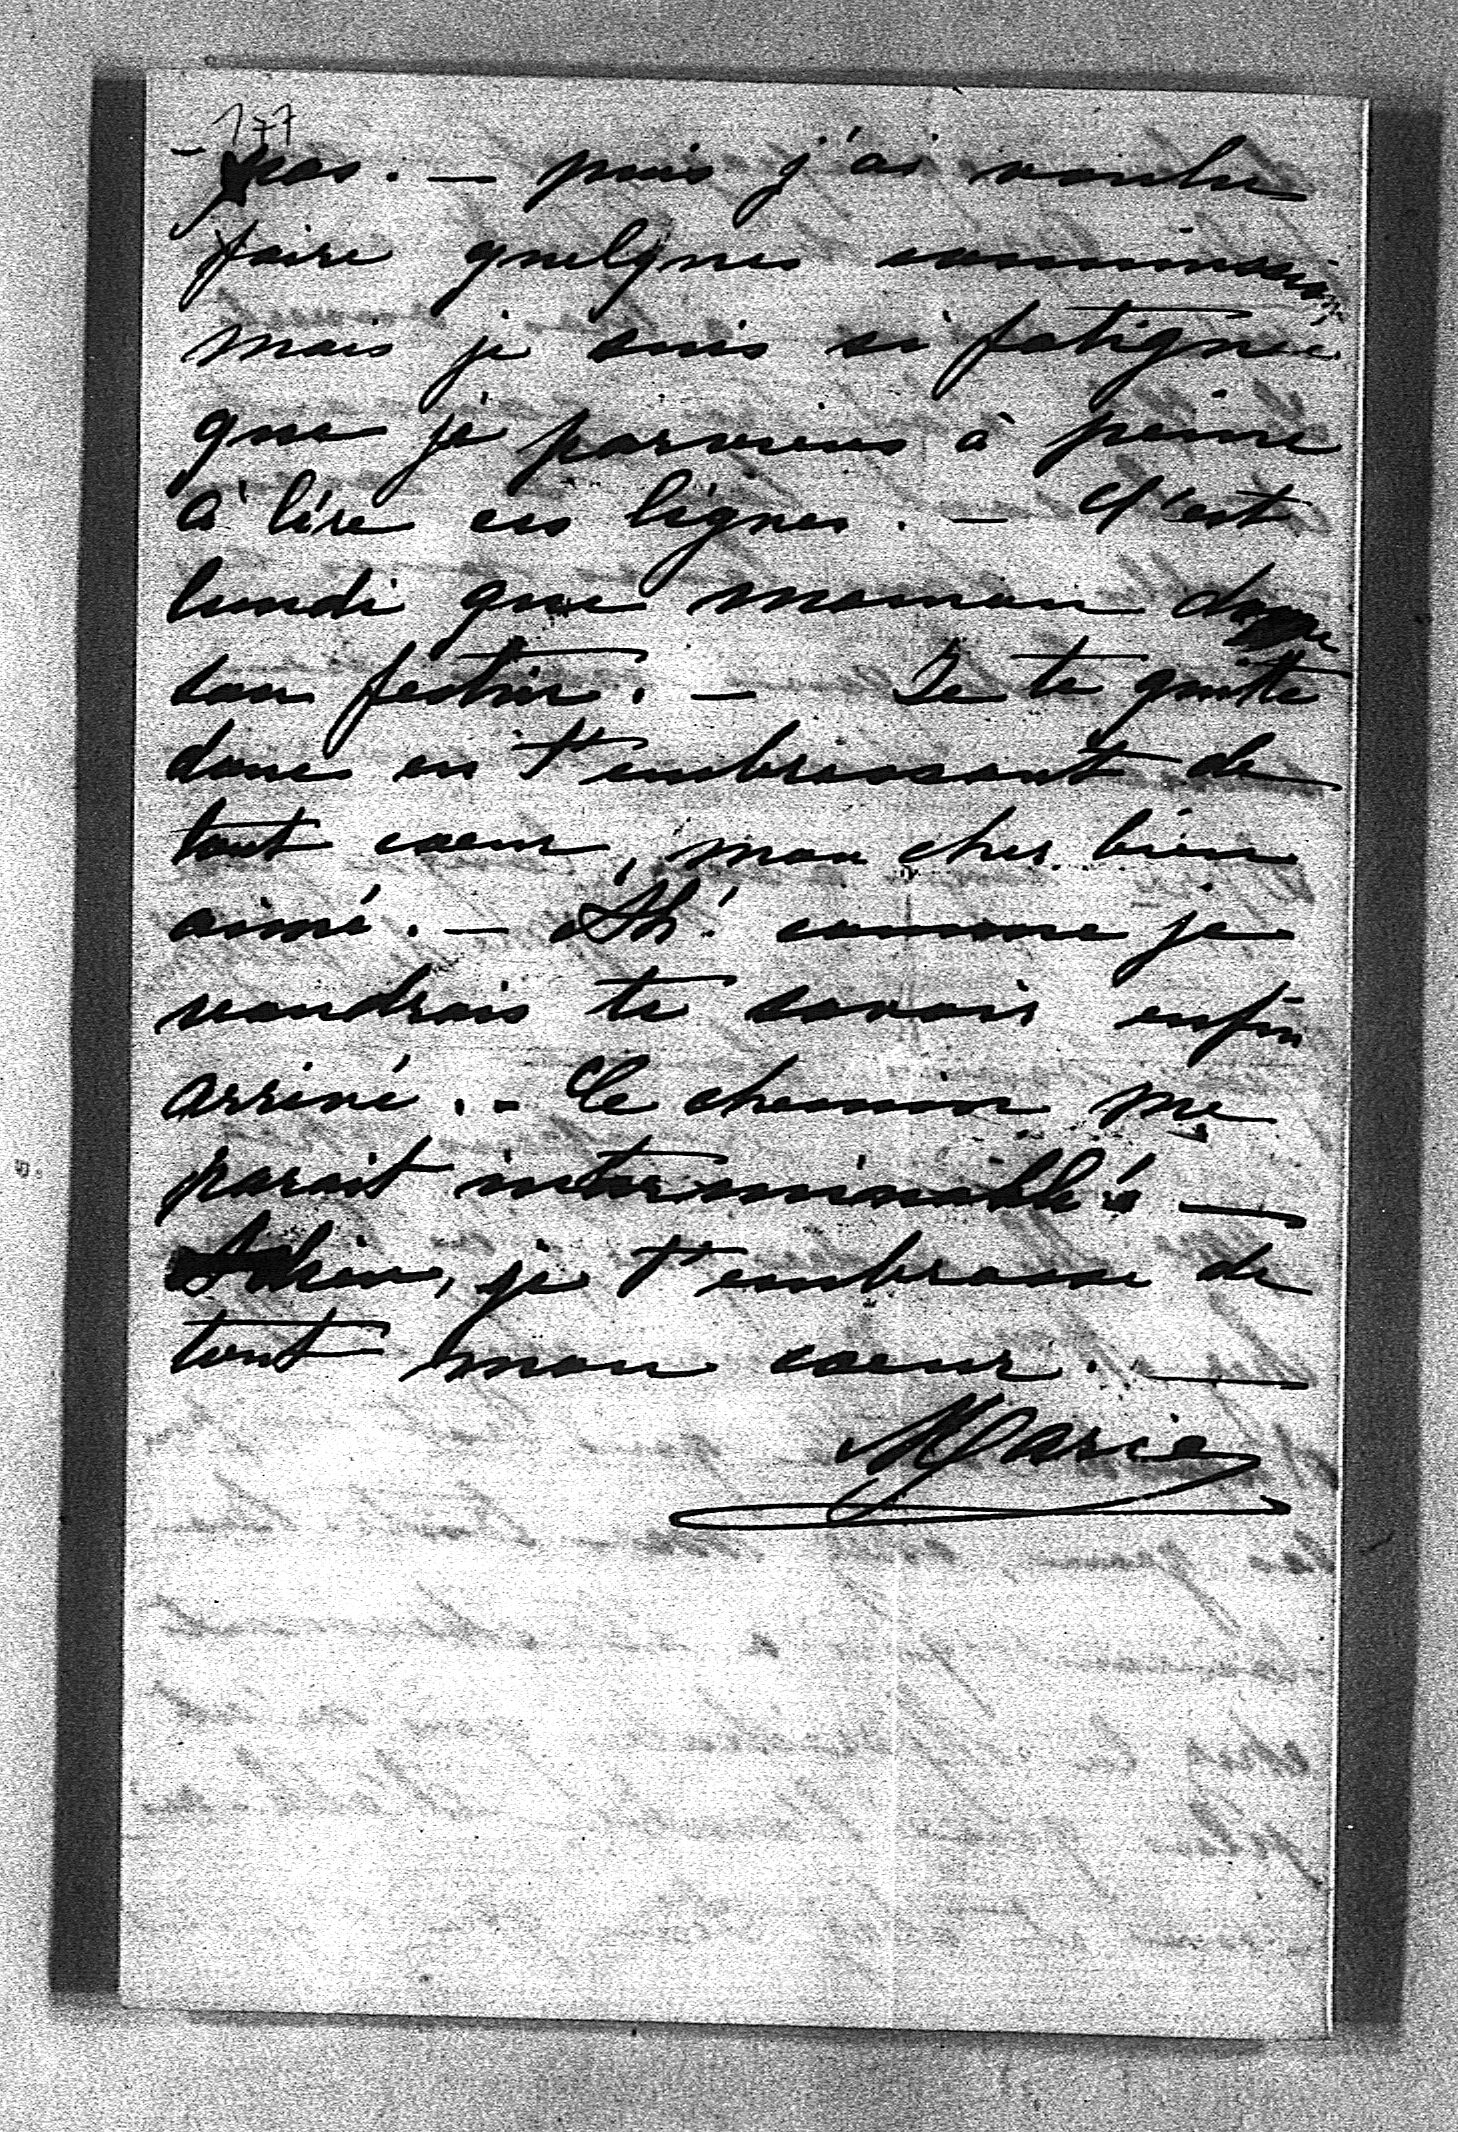 177
pas. — puis j'ai voulu
faire quelques commissions
mais je suis si fatiguée
que je parviens à peine
à lire ces lignes. — C'est
lundi que maman donne
son festin. — Je te quitte
donc en t'embrassant de
tout coeur, mon cher bien
aimé. — Ah! comme je
voudrais te savoir enfin
arrivé. - Ce chemin me
parait interminable —
Adieu, je t'embrasse de
tout mon coeur. —
Marie